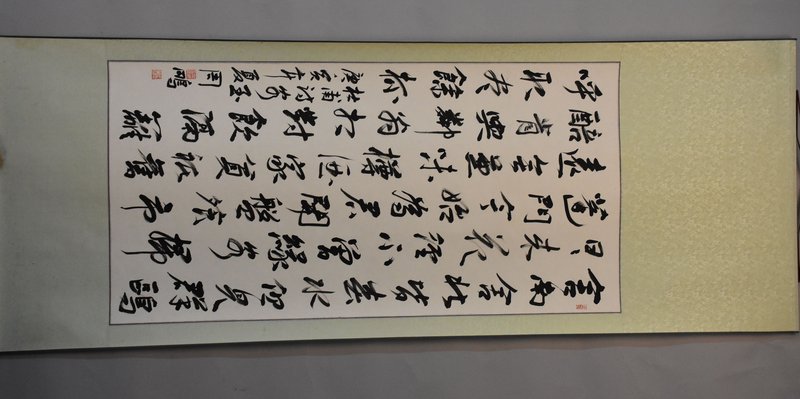 舍南舍北皆春水但見群鷗
日日來花徑不曾緣客掃
蓬門今始為君開盤飧市
遠無兼味樽酒家貧祇舊
醅肯與鄰翁相對飲隔籬
呼取盡餘杯
杜甫詩客至
庚寅年夏
周鵬